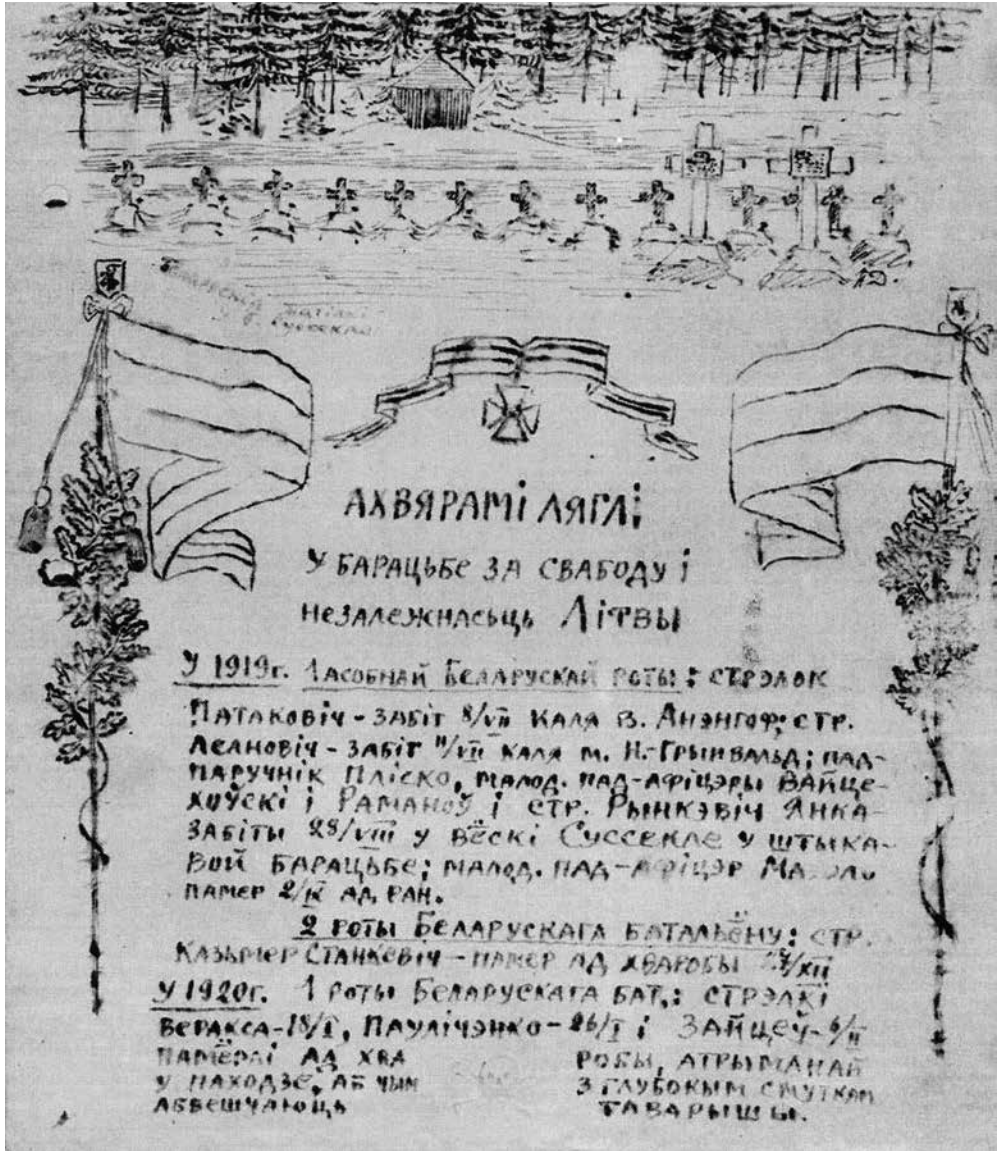 магілкі
Суссекля
АХВЯРАМІ ЛЯГЛІ:
У БАРАЦЬБЕ ЗА СВАБОДУ І
НЕЗАЛЕЖНАСЬЦЬ ЛІТВЫ
У 1919г. 1 АСОБНАЙ БЕЛАРУСКАЙ РОТЫ: СТРЭЛОК
ПАТАКОВІЧ - ЗАБІТ 8/VII КАЛЯ В. АНЭНГОФ; СТР.
ЛЕАНОВІЧ - ЗАБІТ 11/VII КАЛЯ М. Н.-ГРЫНВАЛЬД; ПАД-
ПАРУЧНІК ПЛІСКО, МАЛОД. ПАД-АФІЦЭРЫ ВАЙЦЕ-
ХОЎСКІ І РАМАНОЎ І СТР. РЫНКЭВІЧ ЯНКА-
ЗАБІТЫ 28/VIII У ВЁСКІ СУССЕКЛЕ У ШТЫКА-
ВОЙ БАРАЦЬБЕ; МАЛОД. ПАД-АФІЦЭР
ПАМЕР 2/IX АД РАН.
2 РОТЫ БЕЛАРУСКАГА БАТАЛЬЁНУ: СТР.
КАЗЬМЕР СТАНКЕВІЧ - ПАМЕР АД ХВАРОБЫ
У 1920г. 1 РОТЫ БЕЛАРУСКАГА БАТ.: СТРЭЛКІ
ВЕРАКСА - 18/I, ПАУЛІЧЭНКО - 26/I І ЗАЙЦЕЎ - 6/II
ПАМЁРЛІ АД ХВА РОБЫ, АТРЫМАНАЙ
У ПАХОДЗЕ, АБ ЧЫМ З ГЛУБОКІМ СМУТКАМ
АБВЕШЧАЮЦЬ ТАВАРЫШЫ.